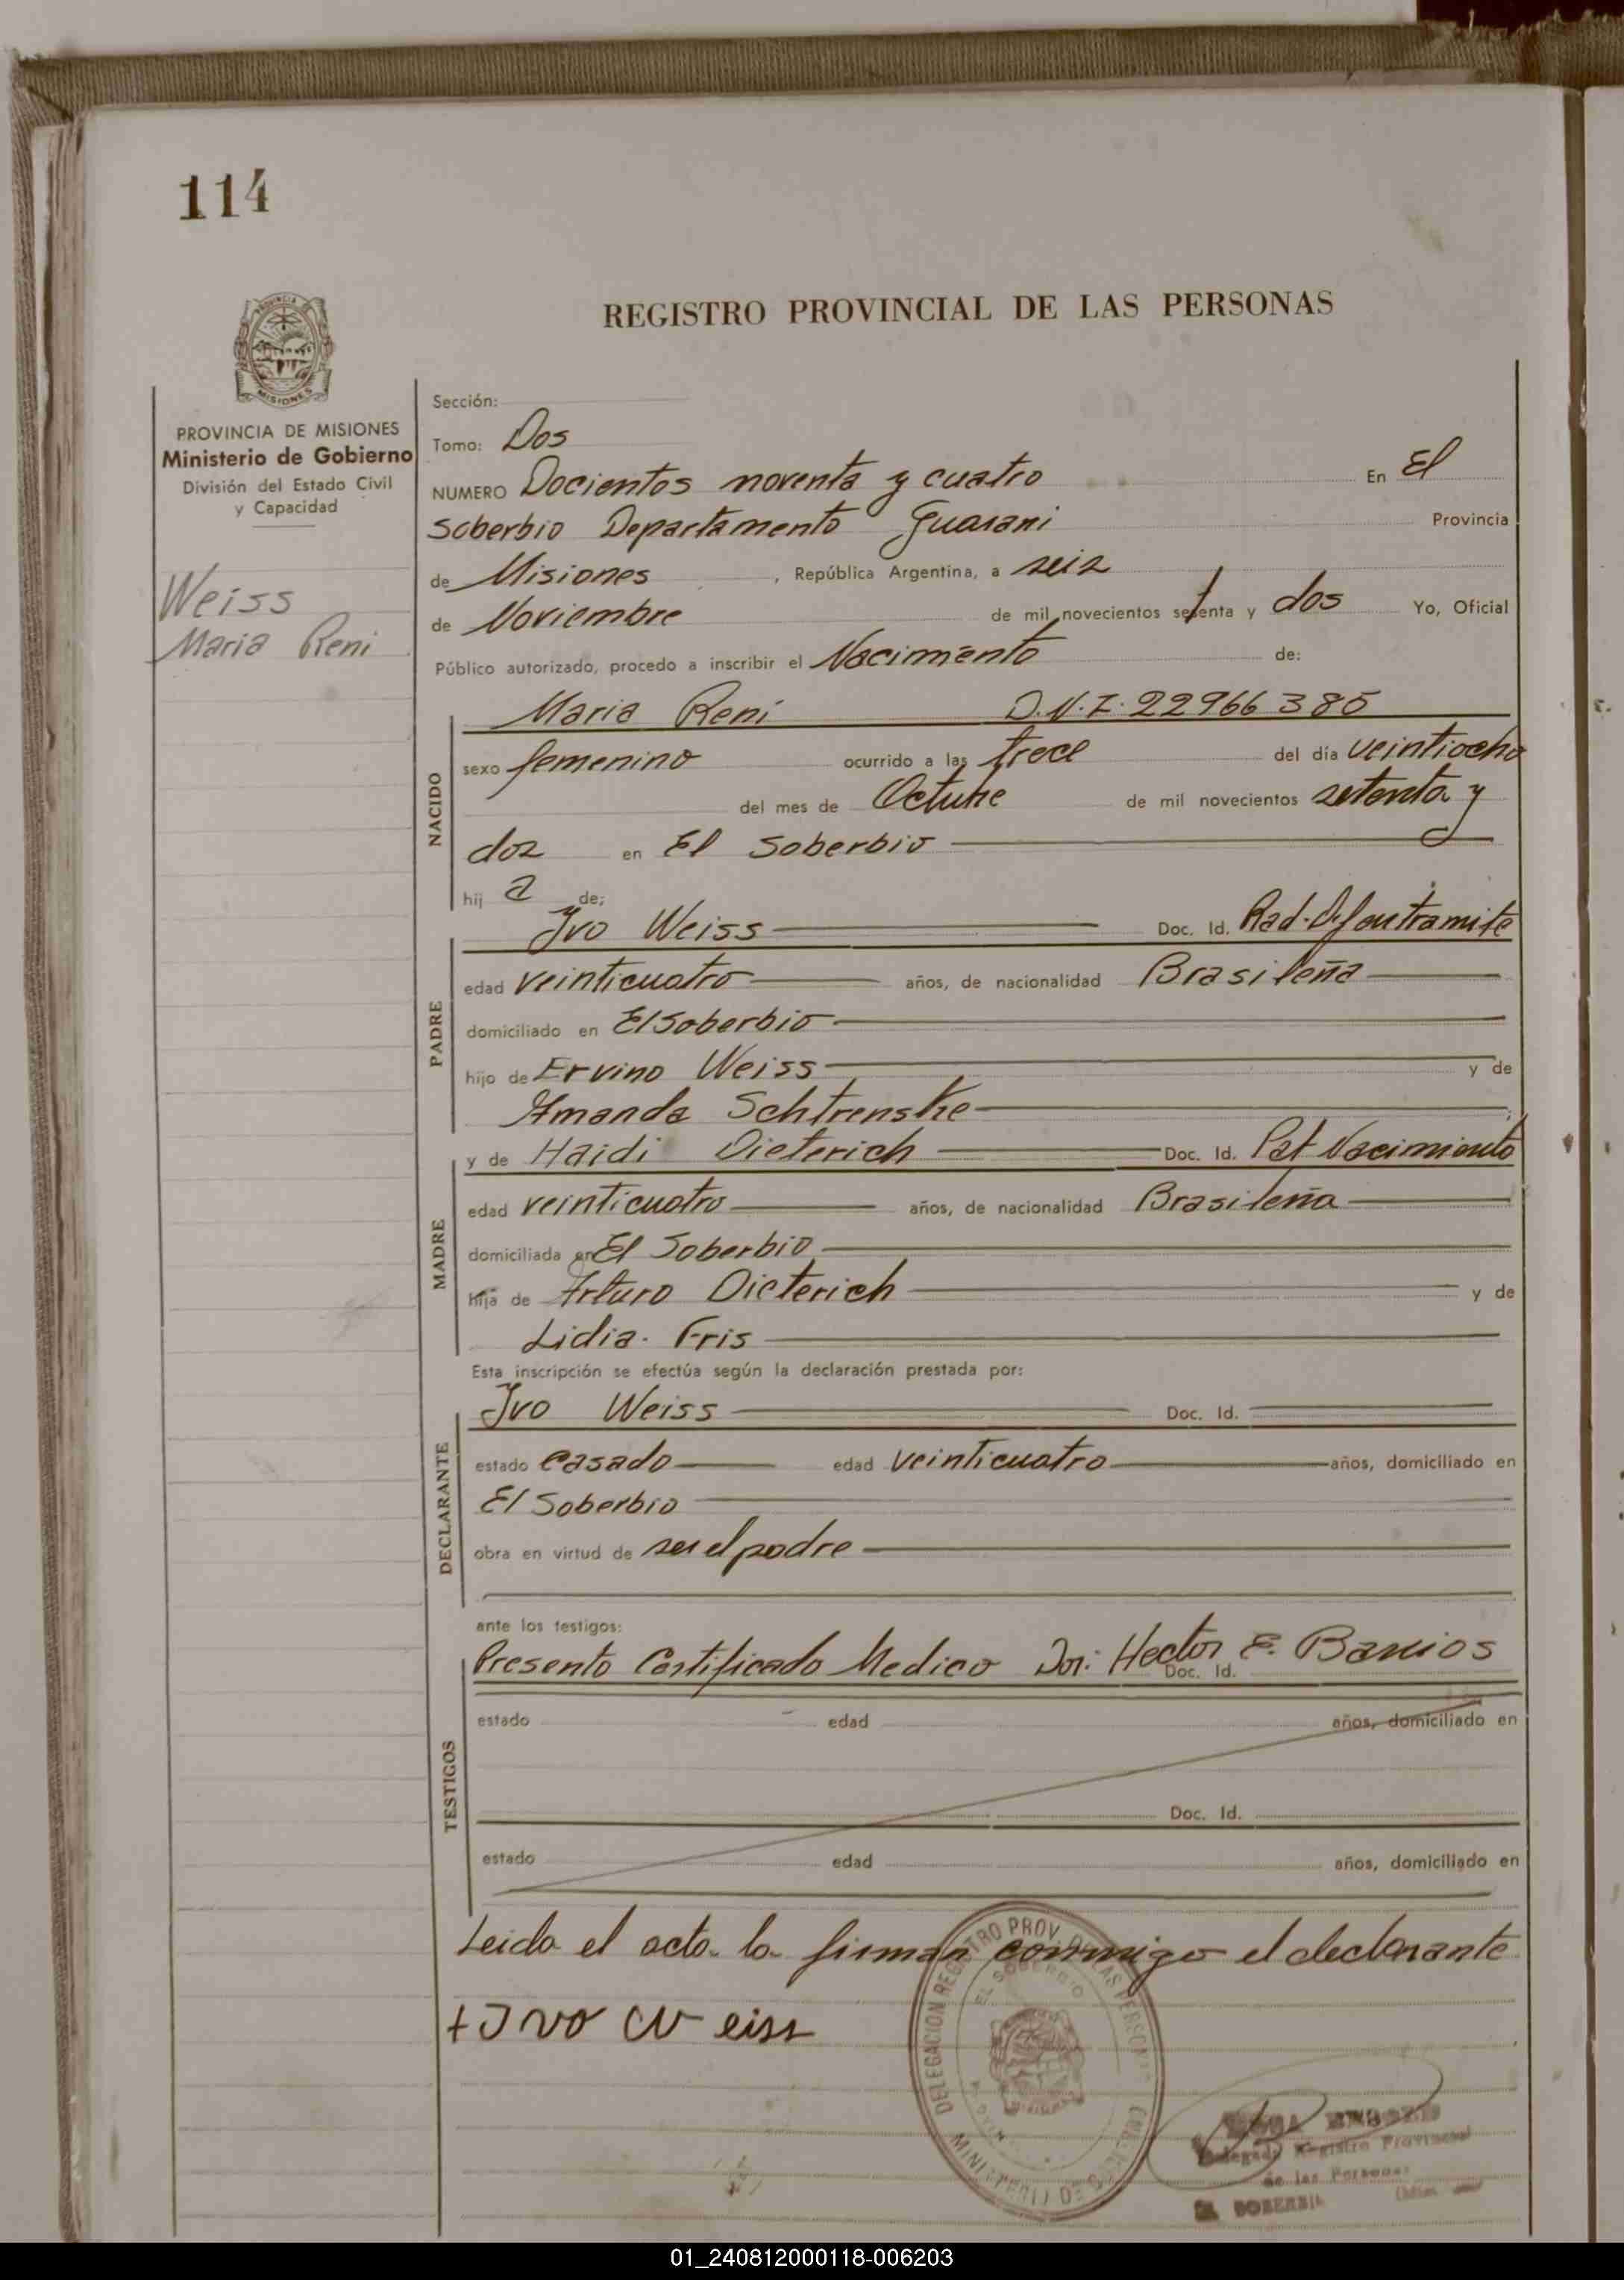 114
REGISTRO PROVINCIAL DE LAS PERSONAS
PROVINCIA DE MISIONES
Ministerio de Gobierno
División del Estado Civil
y Capacidad
Weiss
Maria Reni
Sección:
Tomo: Dos
NUMERO Docientos noventa y cuatro En El
Soberbio Departamento Guarani Provincia
de Misiones, República Argentina, a seis
de Noviembre de mil novecientos setenta y dos Yo, Oficial
Público autorizado, procedo a inscribir el Nacimiento de:
Maria Reni D.N.I. 22966385
NACIDO
sexo femenino ocurrido a las trece del día veintiocho
del mes de Octubre de mil novecientos setenta y
dos en El Soberbio
hij a de;
Ivo Weiss Doc. Id. Rad. Def en tramite
PADRE
edad veinticuatro años, de nacionalidad Brasileña
domiciliado en El Soberbio
hijo de Ervino Weiss y de
Amanda Schtrenske
y de Haidi Dieterich Doc. Id. Pat Nacimiento
MADRE
edad veinticuatro años, de nacionalidad Brasileña
domiciliada en El Soberbio
hija de Arturo Dieterich y de
Lidia Fris
Esta inscripción se efectúa según la declaración prestada por:
Ivo Weiss Doc. Id.
DECLARANTE
estado casado edad veinticuatro años, domiciliado en
El Soberbio
obra en virtud de ser el padre
ante los testigos:
Presento Certificado Medico Dr: Hector E. Barrios
Doc. Id.
TESTIGOS
estado edad años, domiciliado en
Doc. Id.
estado edad años, domiciliado en
Leida el acta la firman conmigo el declarante
+Ivo Weiss
DELEGACION REGISTRO PROV. DE LAS PERSONAS
EL SOBERBIO
MINISTERIO DE GOBIERNO
Delegado Registro Provincial
de las Personas
EL SOBERBIO
01_240812000118-006203